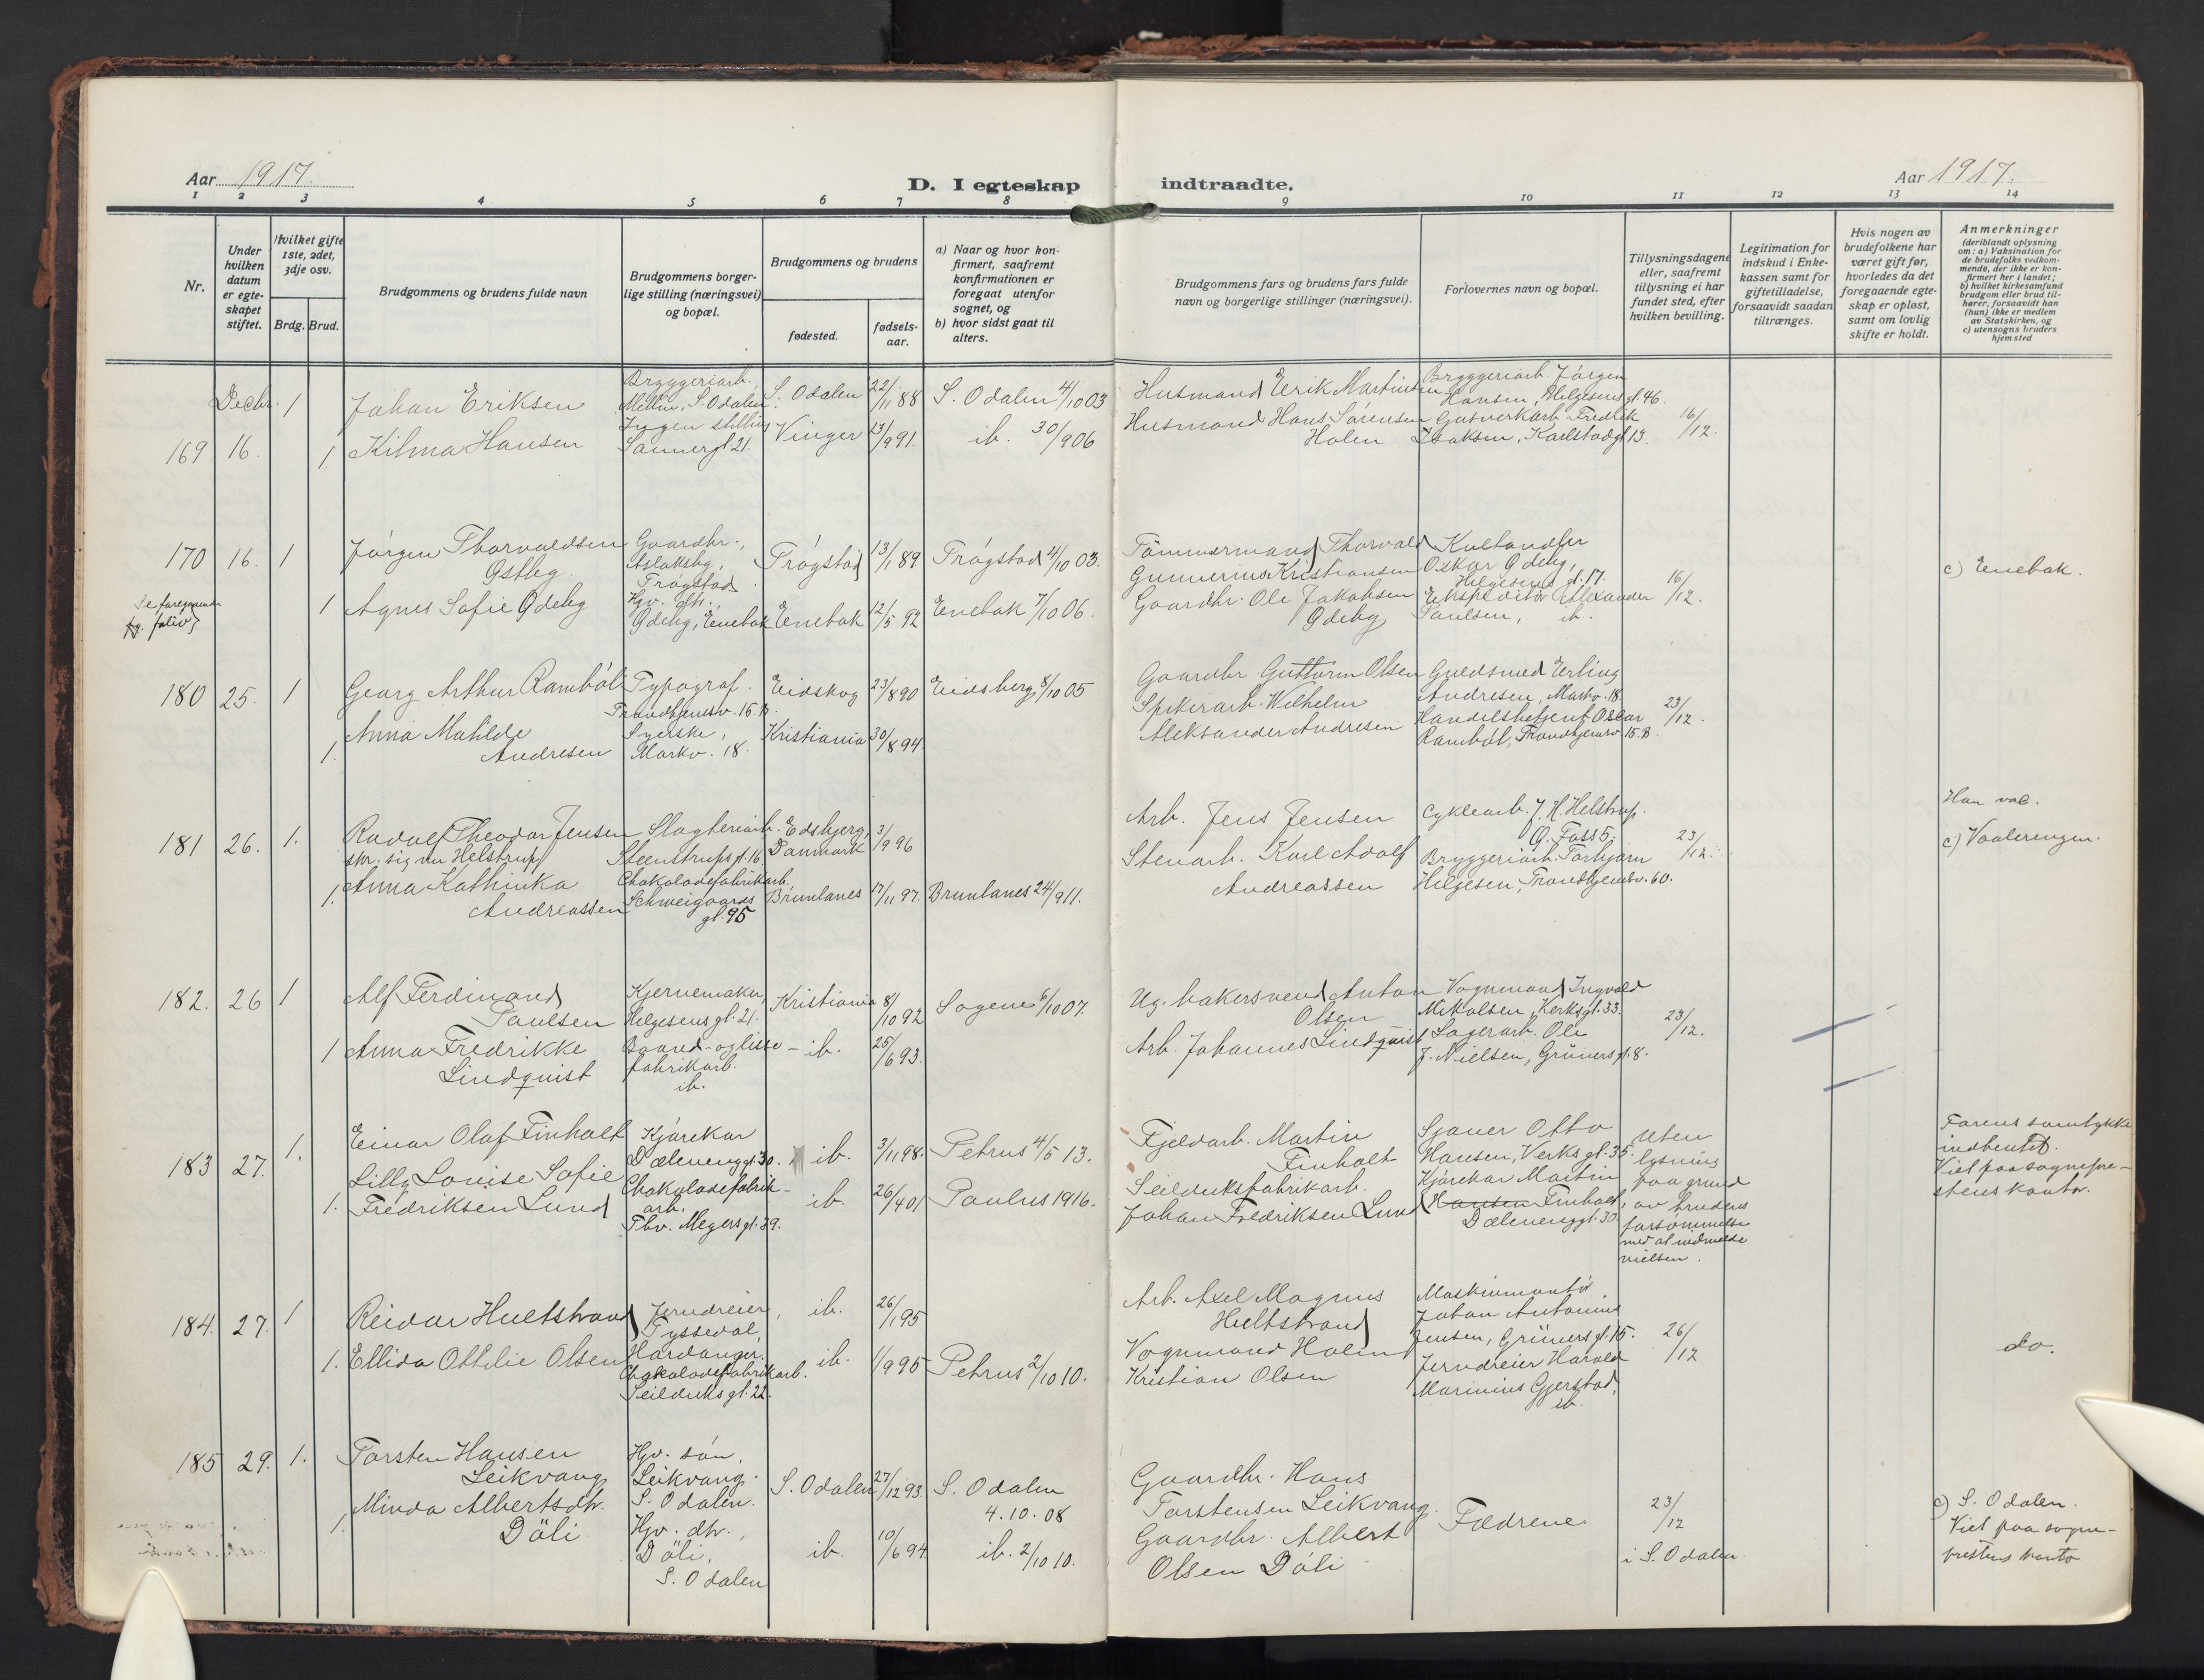 Aar 1917.
D. I egteskap
indtraadte.
Aar 1917.
1 2 3 4 5 6 7 8 9 10 11 12 13 14
Nr.
Under hvilken datum er egte-skapet stiftet.
Hvilket gifte 1ste, 2det, 3dje osv.
Brdg. Brud.
Brudgommens og brudens fulde navn
Brudgommens borger-lige stilling (næringsvei) og bopæl.
Brudgommens og brudens
fødested.
fødsels-aar.
a) Naar og hvor kon-firmert, saafremt konfirmationen er foregaat utenfor sognet, og
b) hvor sidst gaat til alters.
Brudgommens fars og brudens fars fulde navn og borgerlige stillinger (næringsvei).
Forlovernes navn og bopæl.
Tillysningsdagene eller, saafremt tillysning ei har fundet sted, efter hvilken bevilling.
Legitimation for indskud i Enke-kassen samt for giftetilladelse, forsaavidt saadan tiltrænges.
Hvis nogen av brudefolkene har været gift før, hvorledes da det foregaaende egte-skap er opløst, samt om lovlig skifte er holdt.
Anmerkninger
(deriblandt oplysning om: a) Vaksination for de brudefolks vedkom-mende, der ikke er kon-firmert her i landet; b) hvilket kirkesamfund brudgom eller brud til-hører, forsaavidt han (hun) ikke er medlem av Statskirken, og c) utensogns bruders hjemsted
Decbr. 1 Johan Eriksen Bryggeriarb. S. Odalen 22/11 88 S. Odalen 4/10 03 Husmand Erik Martinsen Bryggeriarb. Jørgen Hansen, Helgesens gt. 46.
169 16. 1. Kilma Hansen Ingen stilling Sannergt. 21. Vinger 13/9 91. ib. 30/9 06 Husmand Hans Sørensen Holen Gasverkarb. Fredrik Isaksen, Karlstadgt. 13. 16/12.
170 16. 1 Jörgen Thorvaldsen Østbg. Gaardbr., Aslaksbg, Trøgstad. Trøgstad 13/1 89 Trøgstad 4/10 03. Tömmermand Thorvald Gunnerius Kristiansen Oskar Ødebg, Helgesens gt. 17. c) Enebak.
Se foregaaende fg. folio}
1 Agnes Sofie Ødebg Hgv. dtr., Ødebg, Enebak Enebak 12/5 92 Enebak 7/10 06. Gaardbr. Ole Jakobsen Ødebg Ekspeditör Alexander Paulsen, ib. 16/12.
180 25. 1 Georg Arthur Ramböl Typograf. Trondhjemsv. 15. B. Eidskog 23/8 90 Eidsberg 8/10 05 Gaardbr Guttorm Olsen Guldsmed Erling Andresen, Markv. 18.
1. Anna Matilde Andresen Syerske, Markv. 18. Kristiania 30/8 94 Spikerarb. Wilhelm Aleksander Andresen Handelsbetjent Oscar Ramböl, Trondhjemsv. 15. B. 23/12.
181 26. 1. Rudolf Theodor Jensen skr. sig nu Helstrup Slagteriarb. Steenstrups gt. 16. Edsbjerg, Danmark 3/9 96 Arb. Jens Jensen Cyklearb. J. H. Helstrup. Ø. Foss 5. Han vac.
1. Anna Kathinka Andreassen Chokoladefabrikarb. Schweigaards gt. 95 Brunlanes 17/11 97. Brunlanes 24/9 11. Stenarb. Karl Adolf Andreassen Bryggeriarb. Torbjørn Helgesen, Trondhjemsv. 60. 23/12. c) Vaalerengen.
182. 26 1 Alf Ferdinand Paulsen Kjernemaker, Helgesens gt. 21. Kristiania 8/10 92 Sagene 6/10 07. Ug. makersvend Anton Olsen Vognmand Ingvald Mikalsen, Verksgt. 33.
1 Anna Fredrikke Lindquist Baand- og lisse-fabrikarb. ib. ib. 25/6 93. Arb. Johannes Lindquist Lagerarb. Ole J. Nielsen, Grüners gt. 8. 23/12.
183 27. 1. Einar Olaf Finholt Kjörekar Dælenenggt. 30. ib. 3/11 98. Petrus 4/5 13. Fjeldarb. Martin Finholt Sjauer Otto Hansen, Verks gt. 35. Farens samtykke indhentet. Viet paa sognepre-stens kontor.
1. Lilly Louise Sofie Fredriksen Lund Chokoladefabrik-arb. Thv. Meyers gt. 39. ib. 26/4 01 Paulus 1916. Seilduksfabrikarb. Johan Fredriksen Lund Kjørekar Martin Hansen Finholt, Dælenenggt. 30. Uten lysning paa grund av brudens forsömmelse med at indmelde vielsen.
184. 27. 1 Reidar Hultstrand Jerndreier, Tyssedal, Hardanger. ib. 26/1 95 Arb. Axel Magnus Hultstrand Maskinmontör. Johan Antonius Jensen, Grüners gt. 15.
1. Ellida Ottilie Olsen Chokoladefabrikarb. Seilduks gt. 22. ib. 1/9 95 Petrus 2/10 10. Vognmand Holm Kristian Olsen Jerndreier Harald Marinius Gjerstad, ib. 26/12 do.
185 29. 1. Torsten Hansen Leikvang Hgv. sön, Leikvang. S. Odalen. S. Odalen 27/12 93. S. Odalen 4.10.08 Gaardbr. Hans Torstensen Leikvang. Fædrene 23/12 i S. Odalen. c) S. Odalen. Viet paa sogne-prestens kontor
1. Minda Albertsdtr. Döli Hgv. dtr., Döli, S. Odalen ib. 10/6 94 ib. 2/10 10. Gaardbr. Albert Olsen Döli